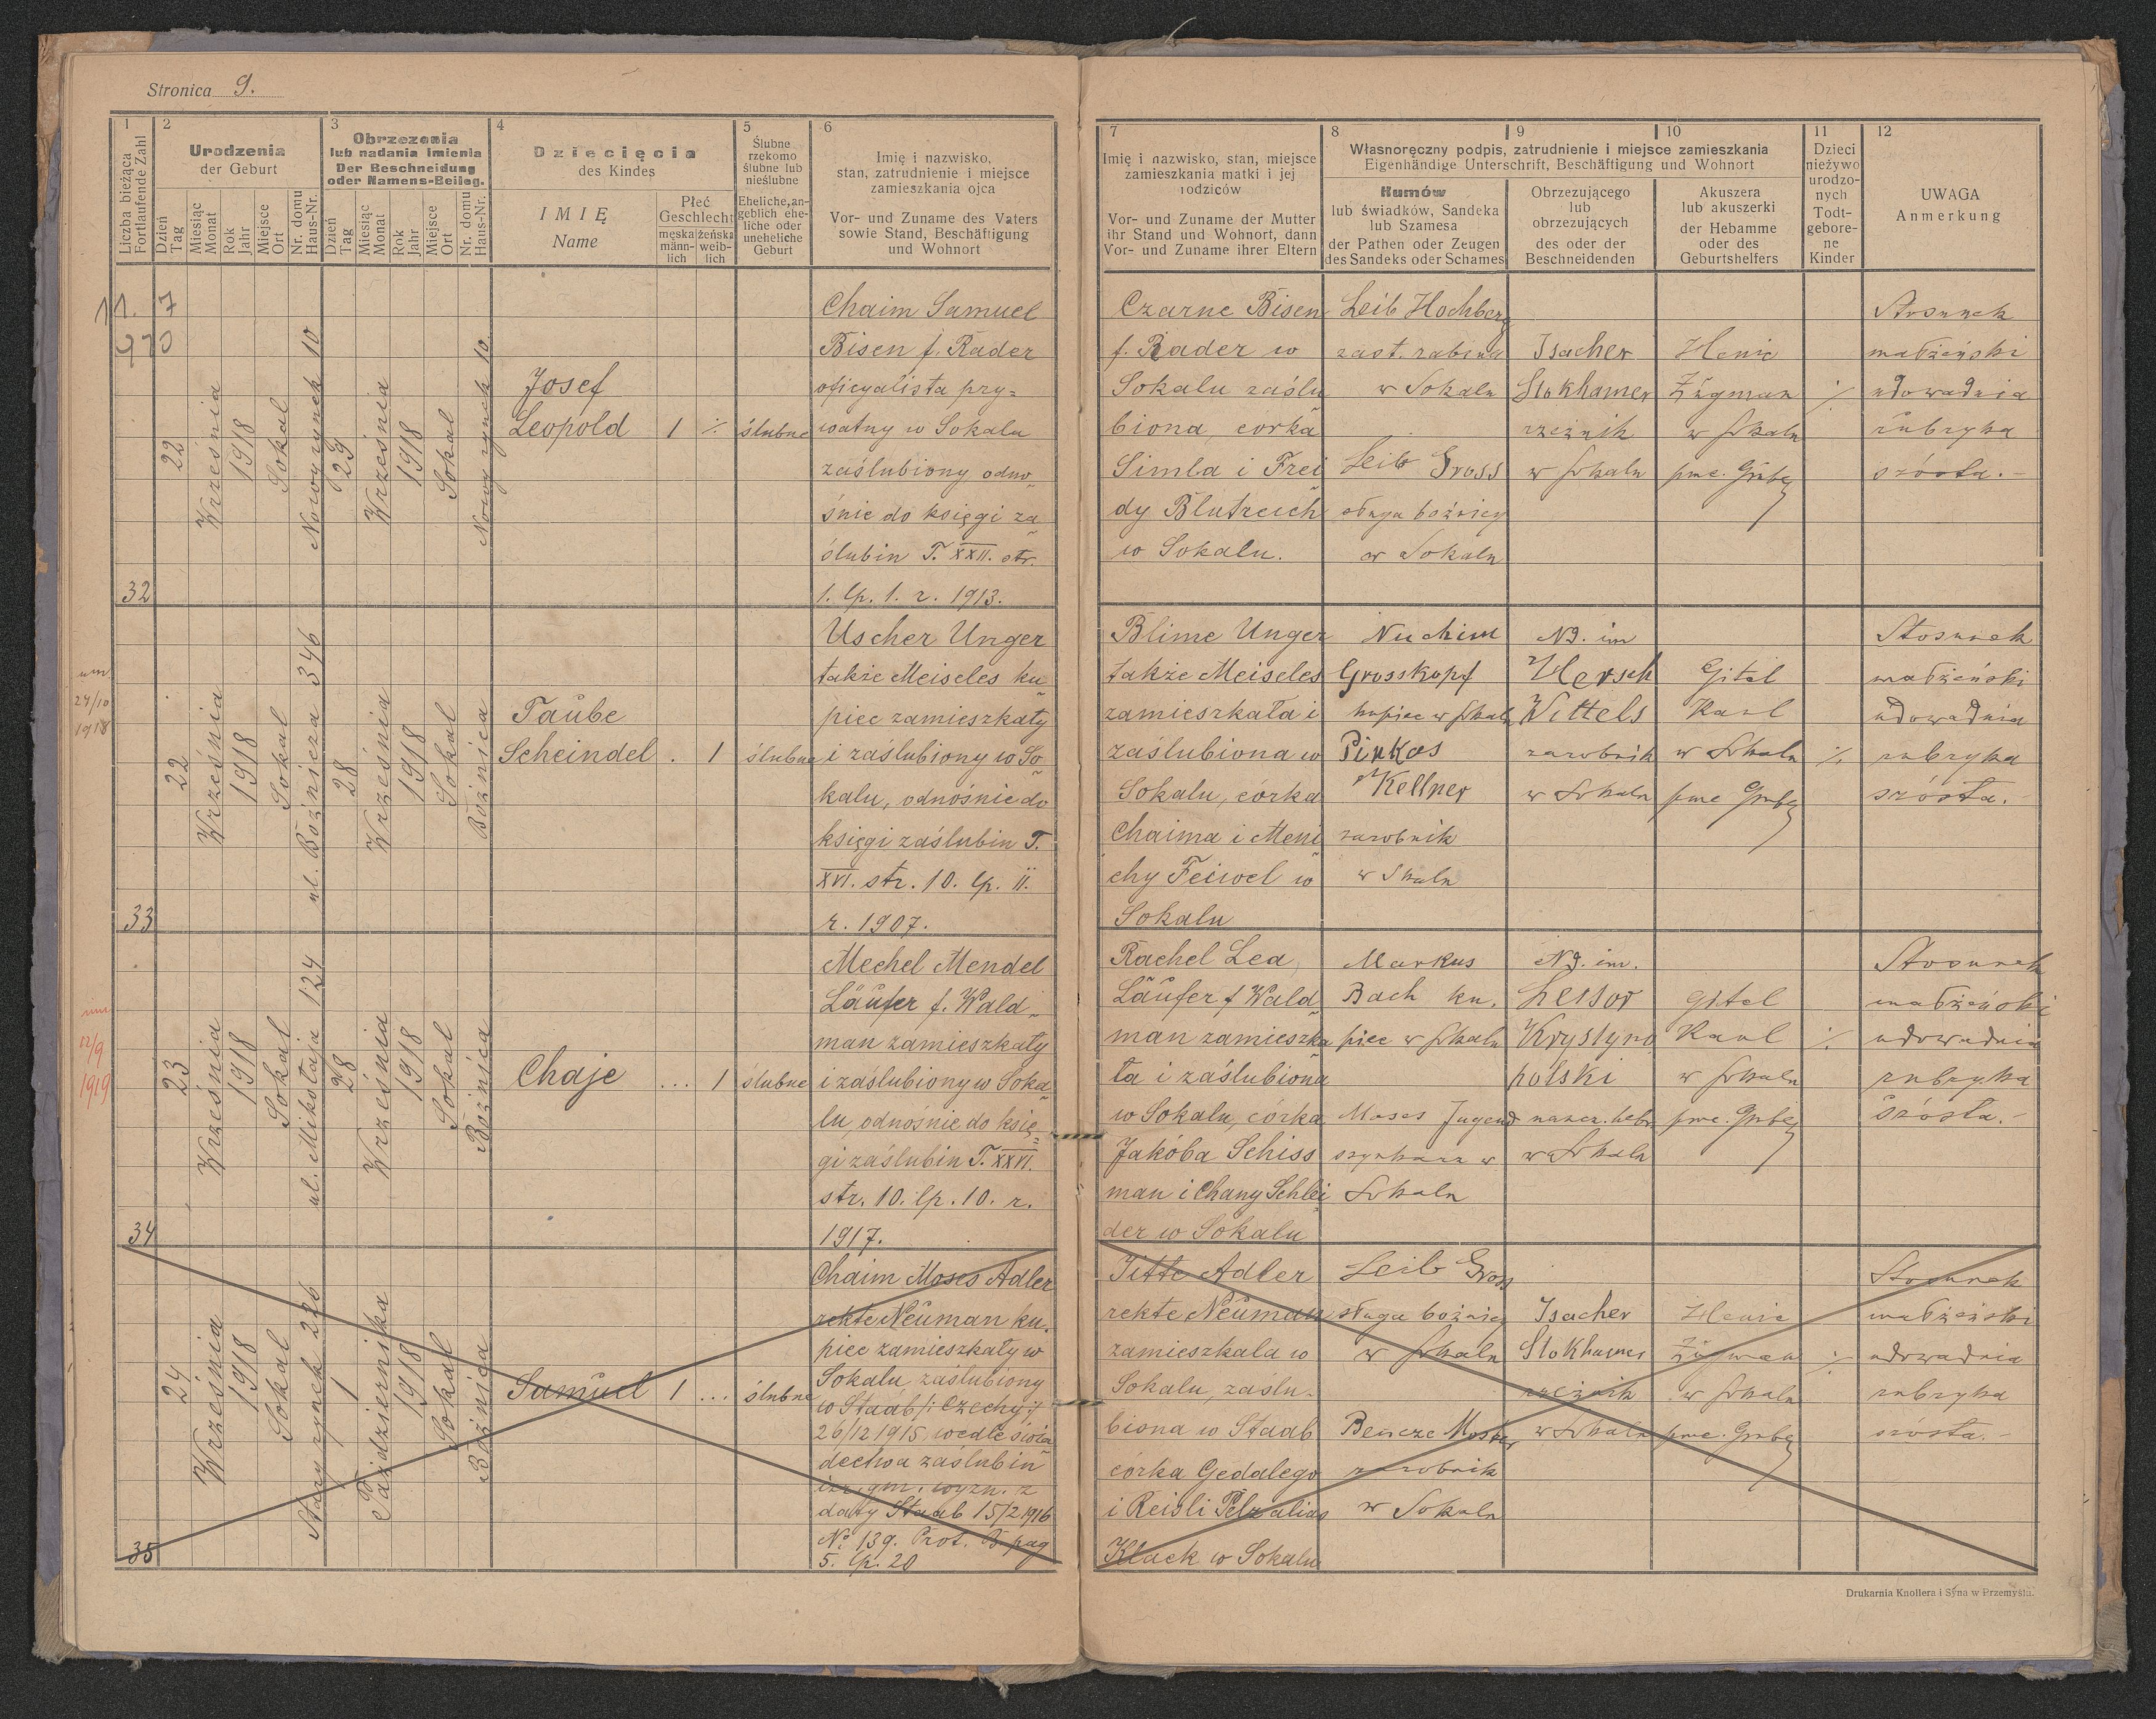 Stronica 9.
1
Liczba bieżąca
Fortlaufende Zahl
2
Urodzenia
der Geburt
Dzień
Tag
Miesiąc
Monat
Rok
Jahr
Miejsce
Ort
Nr. domu
Haus-Nr.
3
Obrzezania
lub nadania Imienia
Der Beschneidung
oder Namens-Beileg.
Dzień
Tag
Miesiąc
Monat
Rok
Jahr
Miejsce
Ort
Nr. domu
Haus-Nr.
4
Dziecięcia
des Kindes
IMIĘ
Name
Płeć
Geschlecht
męska
männ-
lich
żeńska
weib-
lich
5
Ślubne
rzekomo
ślubne lub
nieślubne
Eheliche, an-
geblich ehe-
liche oder
uneheliche
Geburt
6
Imię i nazwisko,
stan, zatrudnienie i miejsce
zamieszkania ojca
Vor- und Zuname des Vaters
sowie Stand, Beschäftigung
und Wohnort
7
Imię i nazwisko, stan, miejsce
zamieszkania matki i jej
rodziców
Vor- und Zuname der Mutter
ihr Stand und Wohnort, dann
Vor- und Zuname ihrer Eltern
8
9
10
Własnoręczny podpis, zatrudnienie i miejsce zamieszkania
Eigenhändige Unterschrift, Beschäftigung und Wohnort
Kumów
lub świadków, Sandeka
lub Szamesa
der Pathen oder Zeugen
des Sandeks oder Schames
Obrzezującego
lub
obrzezujących
des oder der
Beschneidenden
Akuszera
lub akuszerki
der Hebamme
oder des
Geburtshelfers
11
Dzieci
nieżywo
urodzo-
nych
Todt-
gebore-
ne
Kinder
12
UWAGA
Anmerkung
11. 7
970
32
22
Września
1918
Sokal
Nowy rynek 10
29
Września
1918
Sokal
Nowy rynek 10.
Josef
Leopold
1
%
ślubne
Chaim Samuel
Bisen f. Rader
oficyalista pry=
watny w Sokalu
zaślubiony, odno„
śnie do księgi za„
ślubin T. XXII. str.
1. lp. 1. r. 1913.
Czarne Bisen
f. Rader w
Sokalu zaślu„
biona, córka
Simla i Frei„
dy Blutreich
w Sokalu.
Leib Hochberg
zast. rabina
w Sokalu
Leib Gross
sługa bożnicy
w Sokalu
Isacher
Stokhamer
rzeźnik
w Sokalu
Henie
Zügman
w Sokalu
%
Stosunek
małżeński
udowadnia
rubryka
szósta. –
24/10
1918
33
22
Września
1918
Sokal
ul. Bożnicza 346
28
Września
1918
Sokal
Bożnica
Taube
Scheindel
.
1
ślubne
Uscher Unger
także Meiseles ku„
piec zamieszkały
i zaślubiony w So„
kalu, odnośnie do
księgi zaślubin T.
XVI. str. 10. lp. 11.
r. 1907.
Blime Unger
także Meiseles
zamieszkała i
zaślubiona w
Sokalu, córka
Chaima i Meni„
chy Feiwel w
Sokalu
Nuchim
Grosskopf
kupiec w Sokalu
Pinkas
Kellner
zarobnik
w Sokalu
Nd. im
Hersch
Wittels
zarobnik
w Sokalu
Gitel
Karl
w Sokalu
%
Stosunek
małżeński
udowadnia
rubryka
szósta.
22/9
1919
34
23
Września
1918
Sokal
ul. Mikołaja 124
28
Września
1918
Sokal
Bożnica
Chaje
...
1
ślubne
Mechel Mendel
Läufer f. Wald„
man zamieszkały
i zaślubiony w Soka„
lu, odnośnie do księ„
gi zaślubin T. XXVI.
str. 10. lp. 10. r.
1917.
Rachel Lea
Läufer f Wald„
man zamieszka„
ła i zaślubiona
w Sokalu, córka
Jakóba Schiss„
man i Chany Schlei„
der w Sokalu
Markus
Bach ku„
piec w Sokalu
Moses Jugend
szynkarz w
Sokalu
Nd. im.
Leisor
Krystyno
polski
naucz. hebr.
w Sokalu
Gitel
Karl
w Sokalu
%
Stosunek
małżeński
udowadnia
rubryka
szósta. –
35
24
Września
1918
Sokal
Stary rynek 226
1
Października
1918
Sokal
Bożnica
Samuel
1
...
ślubne
Chaim Moses Adler
rekte Neuman ku„
piec zamieszkały w
Sokalu, zaślubiony
w Staab /: Czechy :/
26/12 1915, wedle świa„
dectwa zaślubin
izr. gm. wyzn. z
daty Staab 15/2 1916
No 139. Prot. B. pag
5. lp. 20
Jitte Adler
rekte Neuman
zamieszkala w
Sokalu, zaślu„
biona w Staab
córka Gedalego
i Reisli Pelz alias
Klack w Sokalu
Leib Gross
sługa bożnicy
w Sokalu
zarobnik
w Sokalu
Isacher
Stokhamer
rzeźnik
w Sokalu
Henie
Zügman
w Sokalu
%
Stosunek
małżeński
udowadnia
rubryka
szósta. –
Drukarnia Knollera i Syna w Przemyślu.